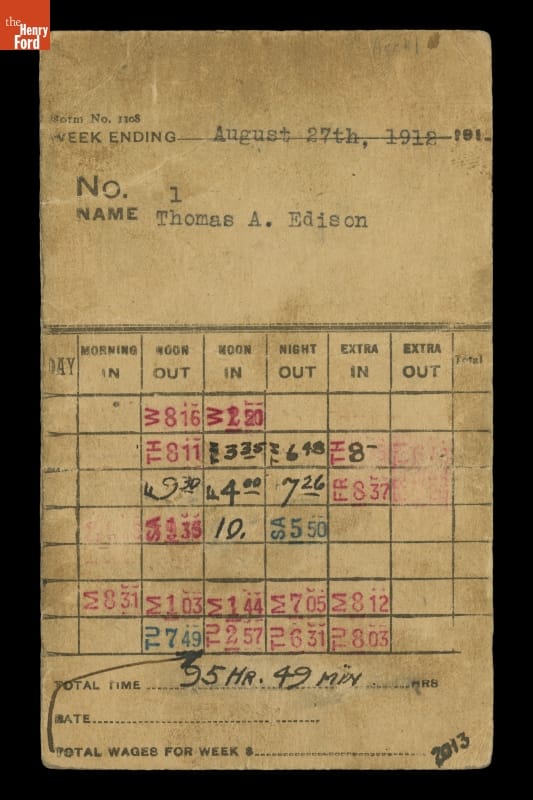 the
Henry
Ford
Form No. 1308
WEEK ENDING August 27th, 1912 191
No. 1
NAME Thomas A. Edison
DAY MORNING IN NOON OUT NOON IN NIGHT OUT EXTRA IN EXTRA OUT Total
W 8 16 W 1 20
TH 8 11 3 35 6 48 TH 8-
F 9 30 F 4 00 7 26 FR 8 37
SA 1 35 10. SA 5 50
M 8 31 M 1 03 M 1 44 M 7 05 M 8 12
TU 7 49 TU 2 57 TU 6 31 TU 8 03
TOTAL TIME 95 HR. 49 MIN HRS
RATE
TOTAL WAGES FOR WEEK $
2013